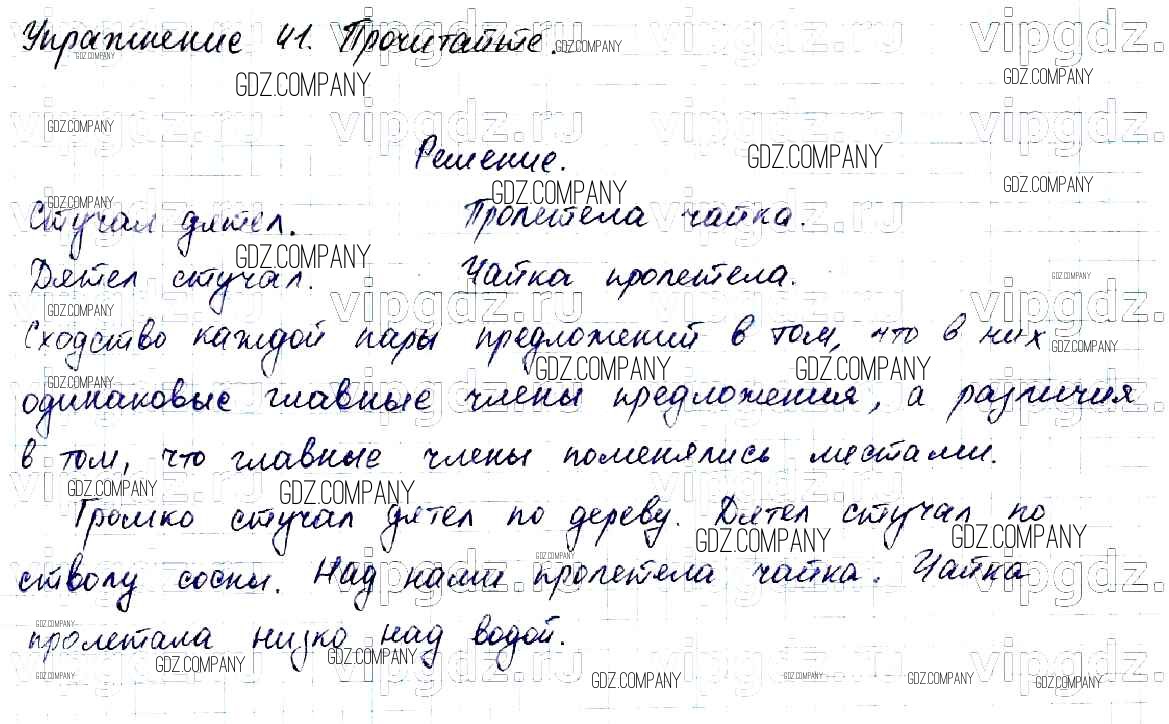 Упражнение 41. Прочитайте.
Решение.
Стучал дятел. Пролетела чайка.
Дятел стучал. Чайка пролетела.
Сходство каждой пары предложений в том, что в них
одинаковые главные члены предложения, а различия
в том, что главные члены поменялись местами.
Громко стучал дятел по дереву. Дятел стучал по
стволу сосны. Над нами пролетела чайка. Чайка
пролетала низко над водой.